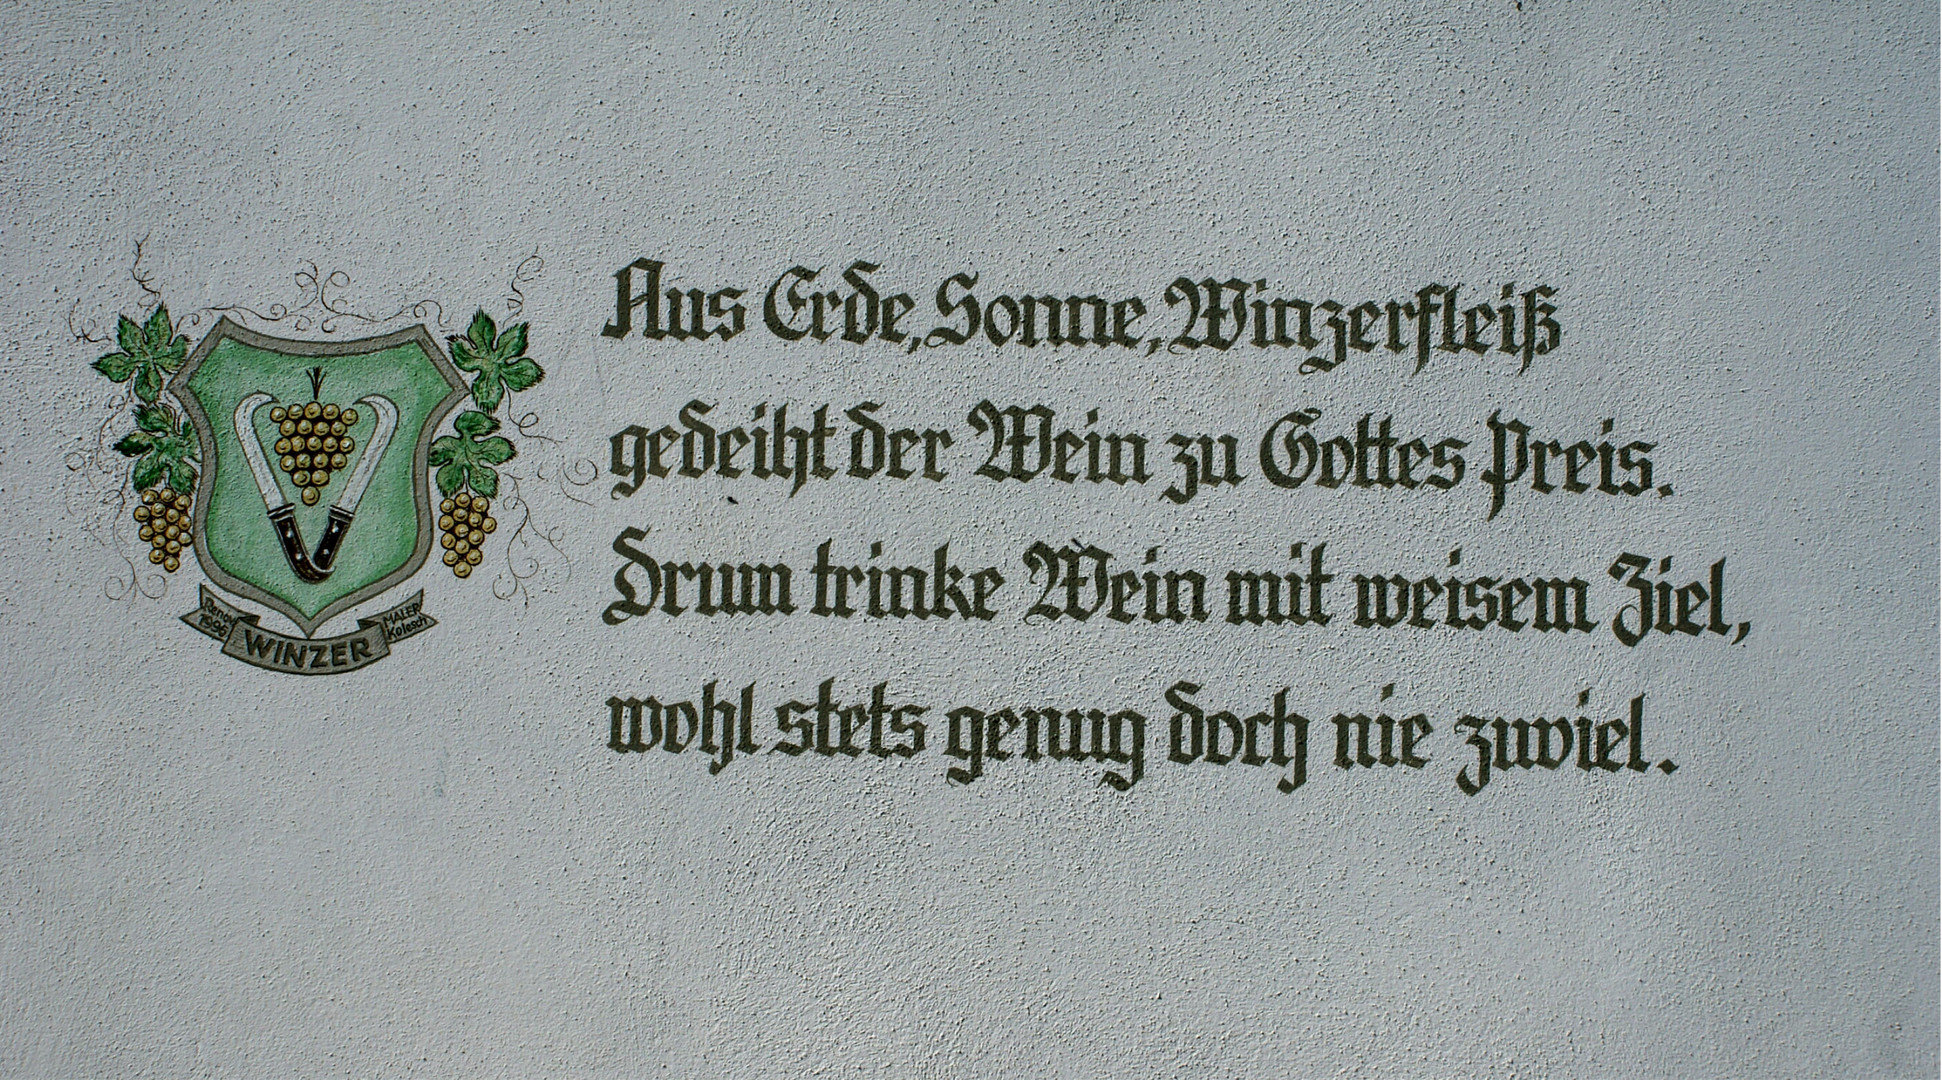 Aus Erde, Sonne, Winzerfleiß
gedeiht der Wein zu Gottes Preis.
Drum trinke Wein mit weisem Ziel,
wohl stets genug doch nie zuviel.
Renov.
1996
WINZER
MALER
Kolesch